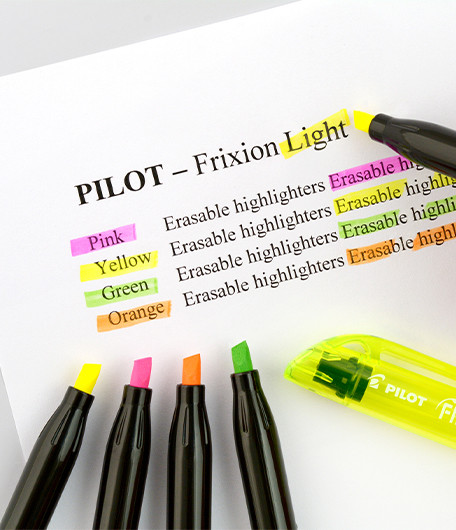 PILOT – Frixion Light
Pink Erasable highlighters Erasable
Yellow Erasable highlighters Erasable
Green Erasable highlighters Erasable
Orange Erasable highlighters Erasable
PILOT